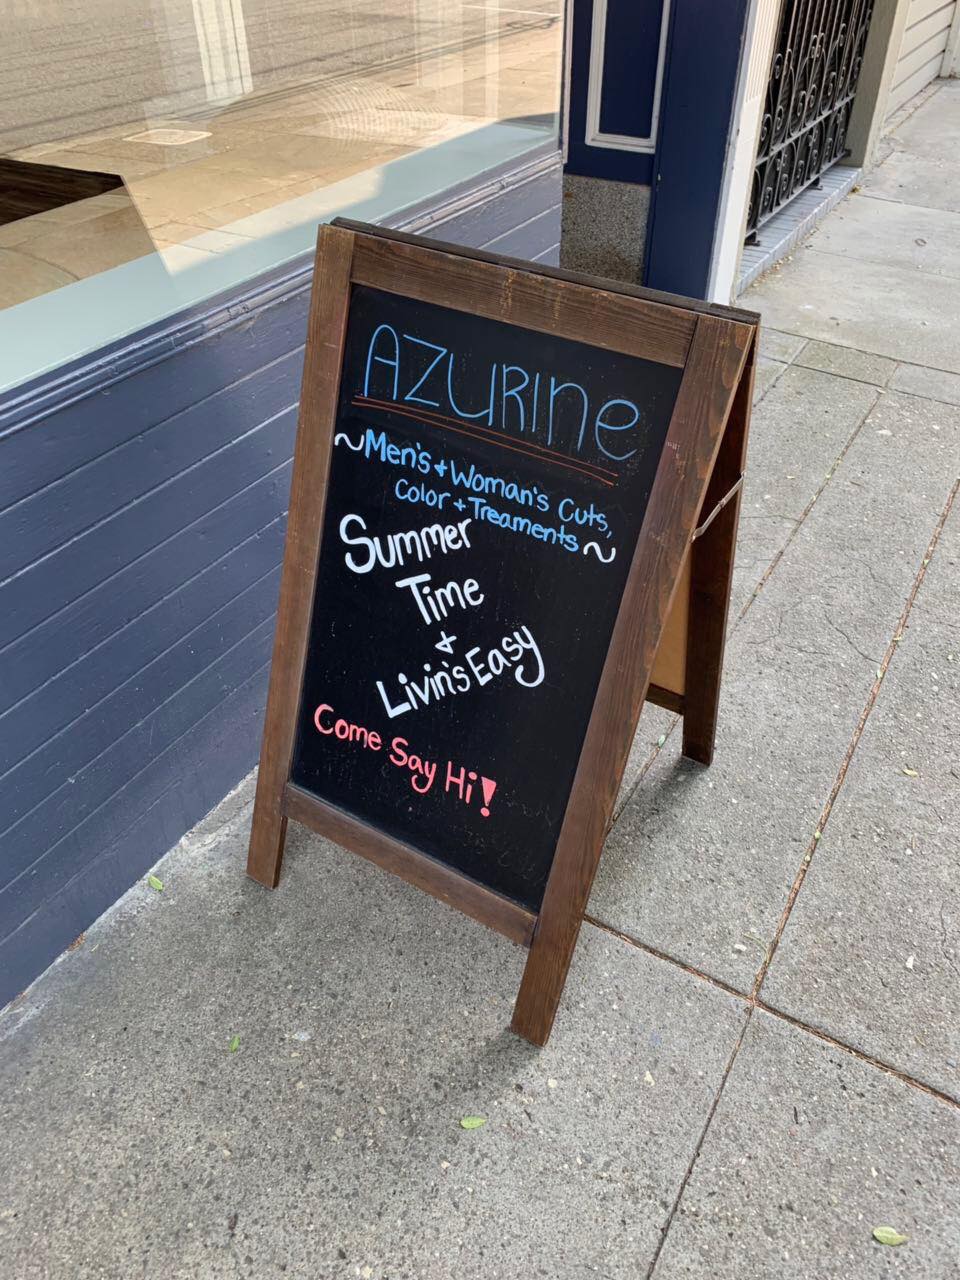 AZURINE
~Men's + Woman's Cuts,
Color + Treaments~
Summer
Time
&
Livin's Easy
Come Say Hi!